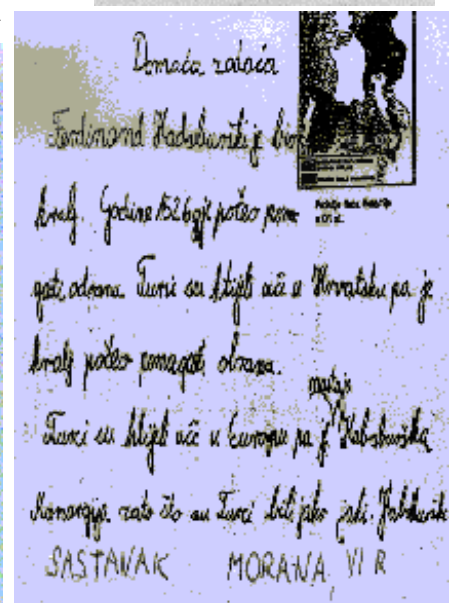 Domaća zadaća
Ferdinand Habsburški je bio
kralj. Godine 1526 je počeo pom
gati odrana. Turci su htjeli ući u Hrvatsku pa je
kralj počeo pomagat obrana.
nastaje
Turci su htjeli ući u Europu pa je Habsburška
Monargija zato što su Turci bili jako jaki.
SASTANAK MORANA VI R